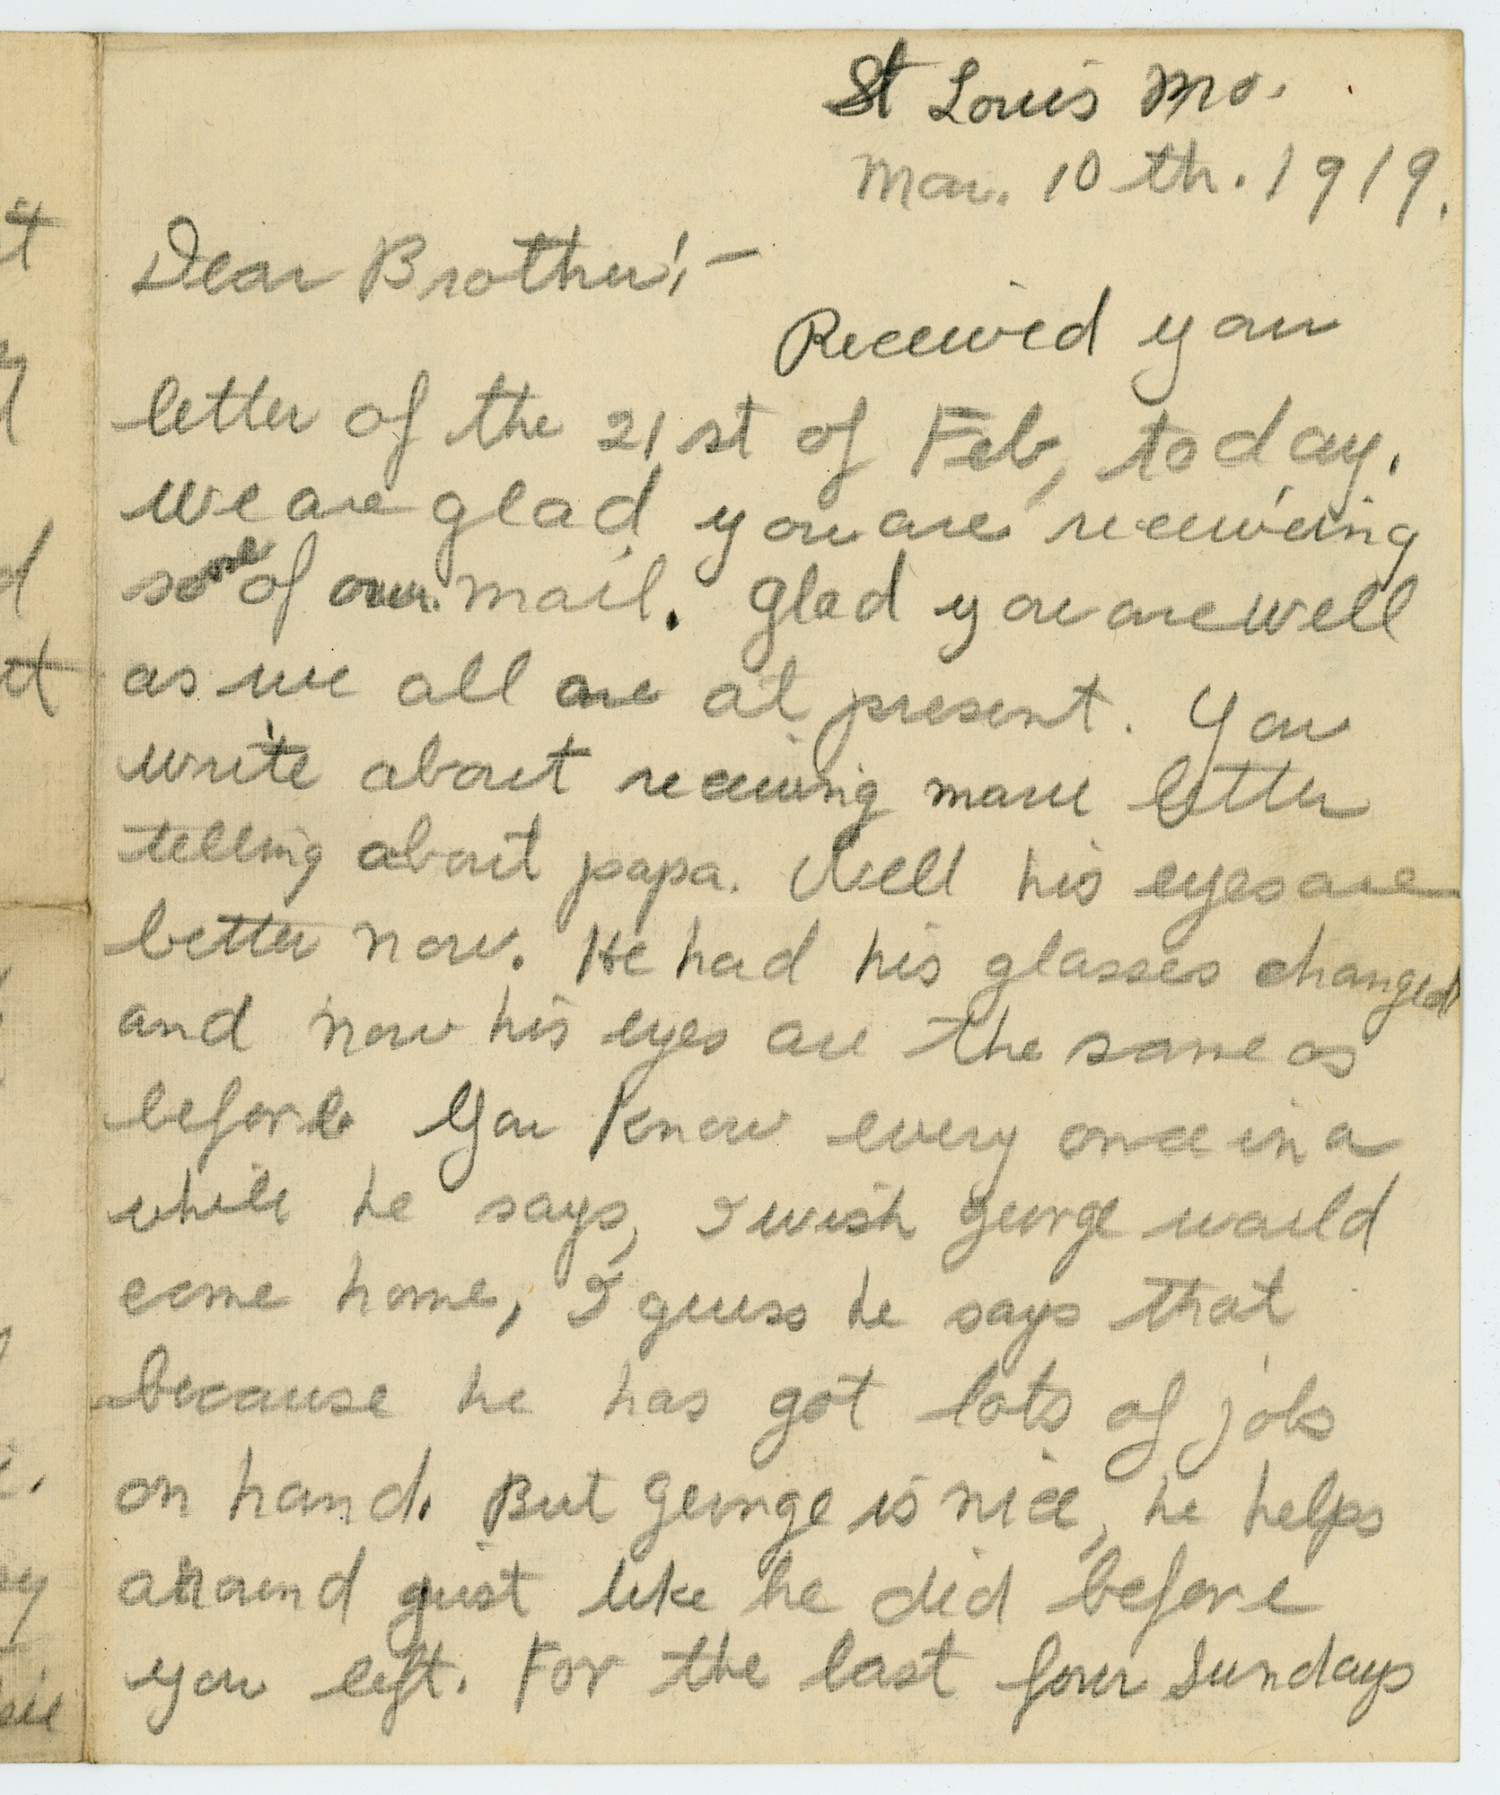 St Louis Mo.
Mar. 10 th. 1919.
Dear Brother:-
Received your
letter of the 21 st of Feb, today.
We are glad you are receiveing
some of our mail. Glad you are well
as we all are at present. You
write about receiving marie letter
telling about papa. Well his eyes are
better now. He had his glasses changed
and now his eyes are the same as
before You know every once in a
while he says, I wish George would
come home, I guess he says that
because he has got lots of jobs
on hand. But George is nice, he helps
around just like he did before
you left. For the last four Sundays